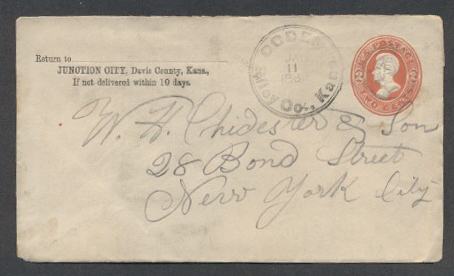 Return to
JUNCTION CITY, Davis County, Kans.,
If not delivered within 10 days.
OGDEN
11
188
Co., Kan
U.S. POSTAGE
TWO CENTS
W. H. Chidester & Son
28 Bond Street
New York City